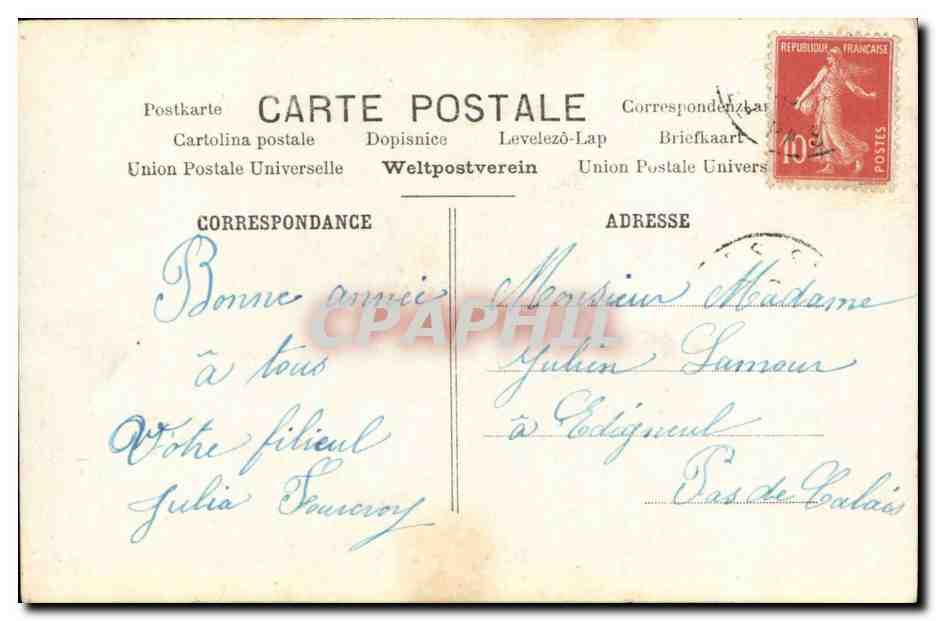 REPUBLIQUE FRANÇAISE
10c POSTES
Postkarte CARTE POSTALE Correspondenzkar
Cartolina postale Dopisnice Levelezô-Lap Briefkaart
Union Postale Universelle Weltpostverein Union Postale Univers
CORRESPONDANCE
Bonne année
à tous
Votre filieul
Julia Fourcroy
ADRESSE
Monsieur Madame
Julien Lamour
à Edigneul
Pas de Calais
CPAPHIL